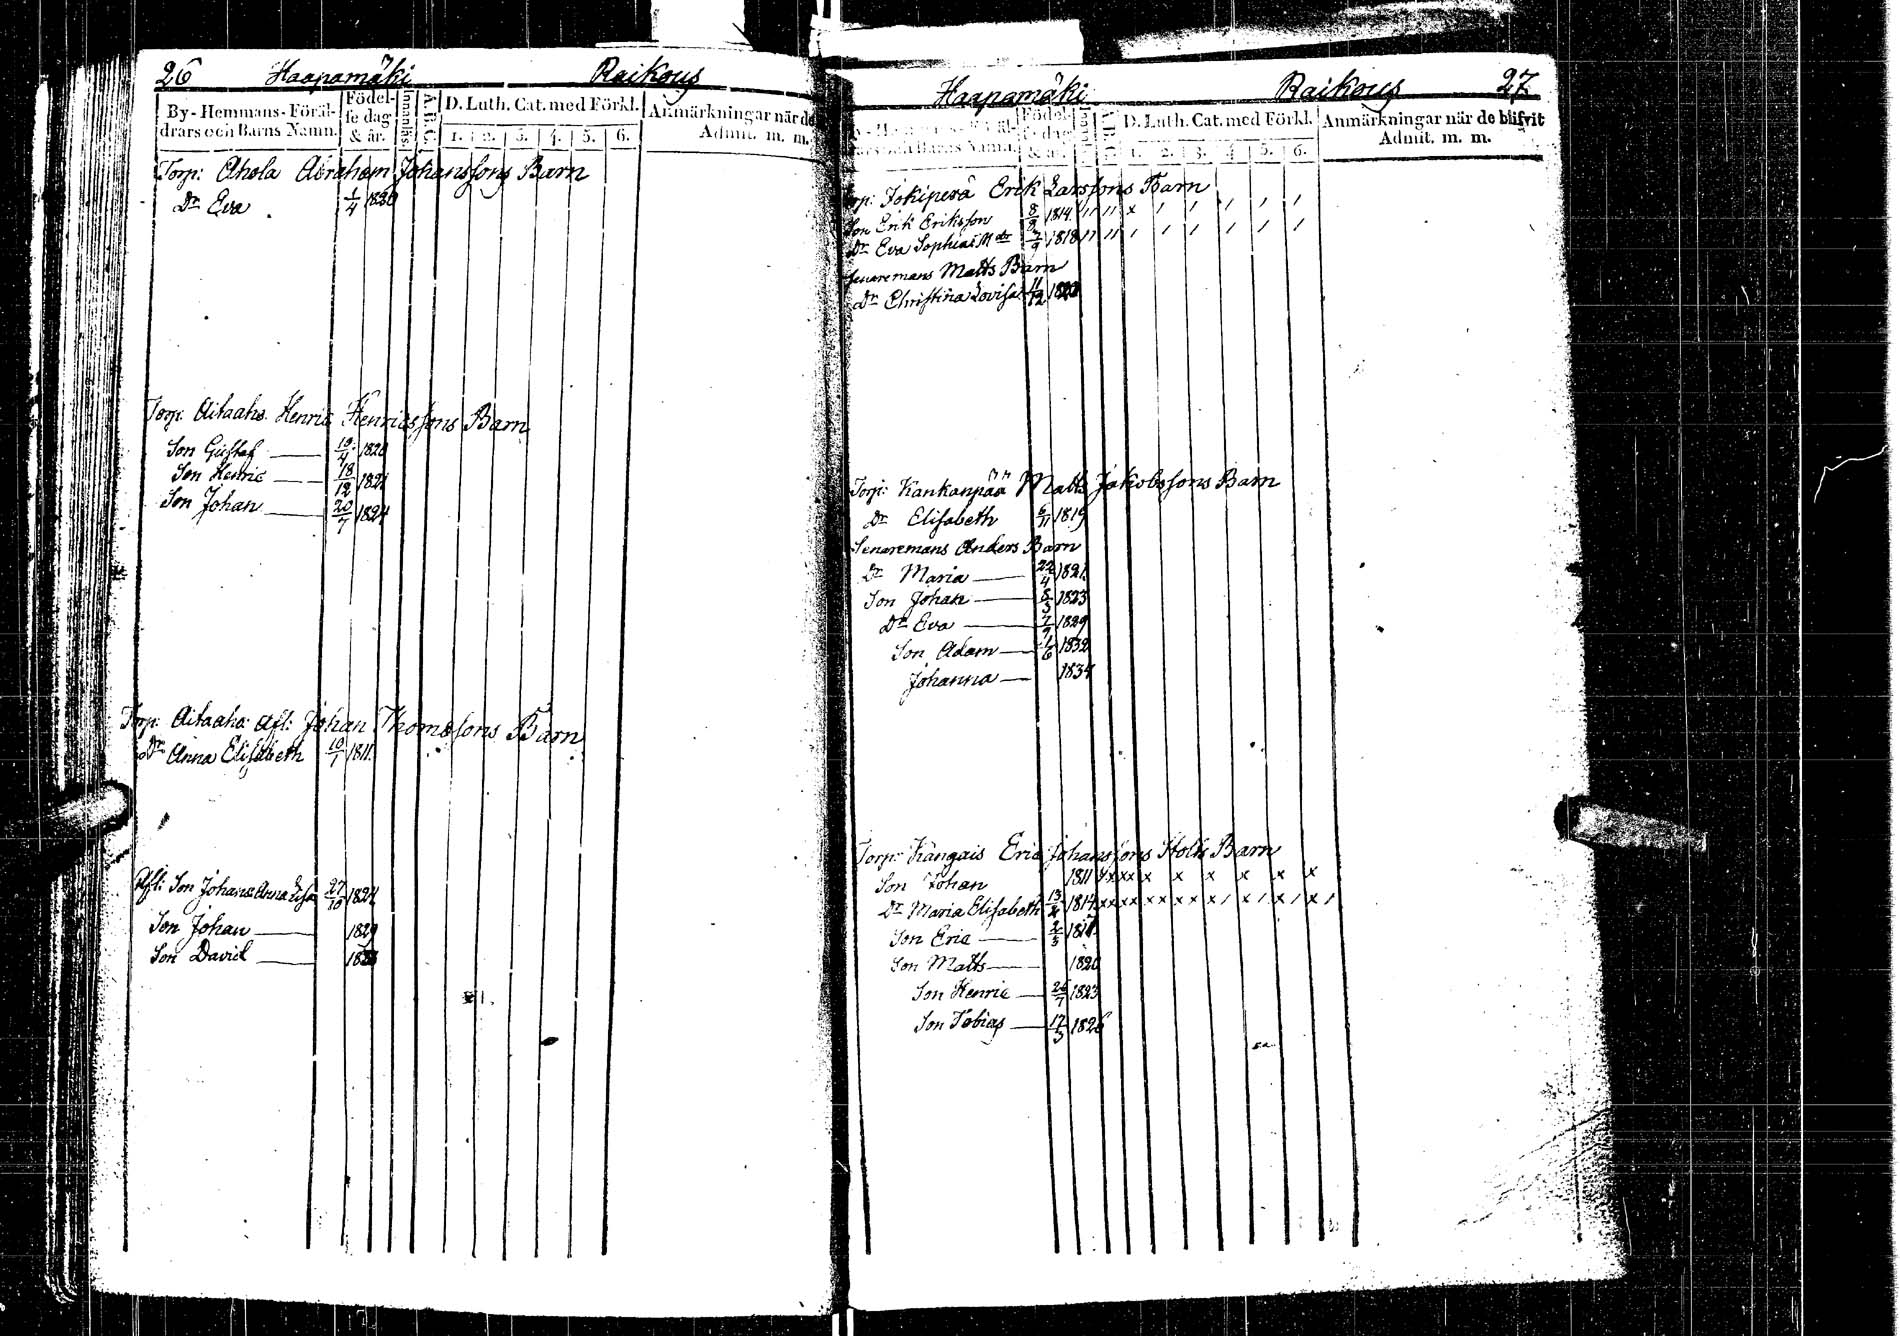 26 Haapamäki Raikous
By-Hemmans-Föräl-
drars och Barns Namn.
Födel-
se dag
& år.
Innanläs.
A.B.C.
D. Luth. Cat. med Förkl.
1. 2. 3. 4. 5. 6.
Anmärkningar när de
Admit. m. m.
Torp: Ahola Abraham Johanssons Barn
Dr Eva 1/4 1830
Torp: Aitaaho Henric Henricssons Barn
Son Gustaf 19/4 1820
Son Henric 18/12 1821
Son Johan 20/7 1824
Torp: Aitaaho Afl: Johan Thomæsons Barn
Dr Anna Elisabeth 10/1 1811.
Afl: Son Johans Anna Lisa 27/10 1824
Son Johan 1829
Son David
Haapamäki Raikous 27
By-Hemmans-Föräl-
drars och Barns Namn.
Födel-
se dag
& år.
D. Luth. Cat. med Förkl.
1. 2. 3. 4. 5. 6.
Anmärkningar när de blifvit
Admit. m. m.
Torp: Jokiperä Erik Larssons Barn
Son Erik Eriksson 8/8 1814 11 11 x 1 1 1 1 1
Dr Eva Sophia M dr 7/9 1818 11 11 1 1 1 1 1 1
Senaremans Matts Barn
Dr Christina Lovisa 11/12
Torp: Kankanpää Matts Jakobssons Barn
Dr Elisabeth 6/11 1819
Senaremans Anders Barn
Dr Maria 22/4 1821
Son Johan 8/3 1823
Dr Eva 7/9 1829
Son Adam 1/6 1832
Johanna 1834
Torp: Kångais Eric Johanssons Holts Barn
Son Johan 1811 xx xx x x x x x x
Dr Maria Elisabeth 13/2 1814 xx xx xx xx x1 x1 x1 x1
Son Eric 2/3 1817.
Son Matts 1820
Son Henric 26/7 1823
Son Tobias 17/3 1826